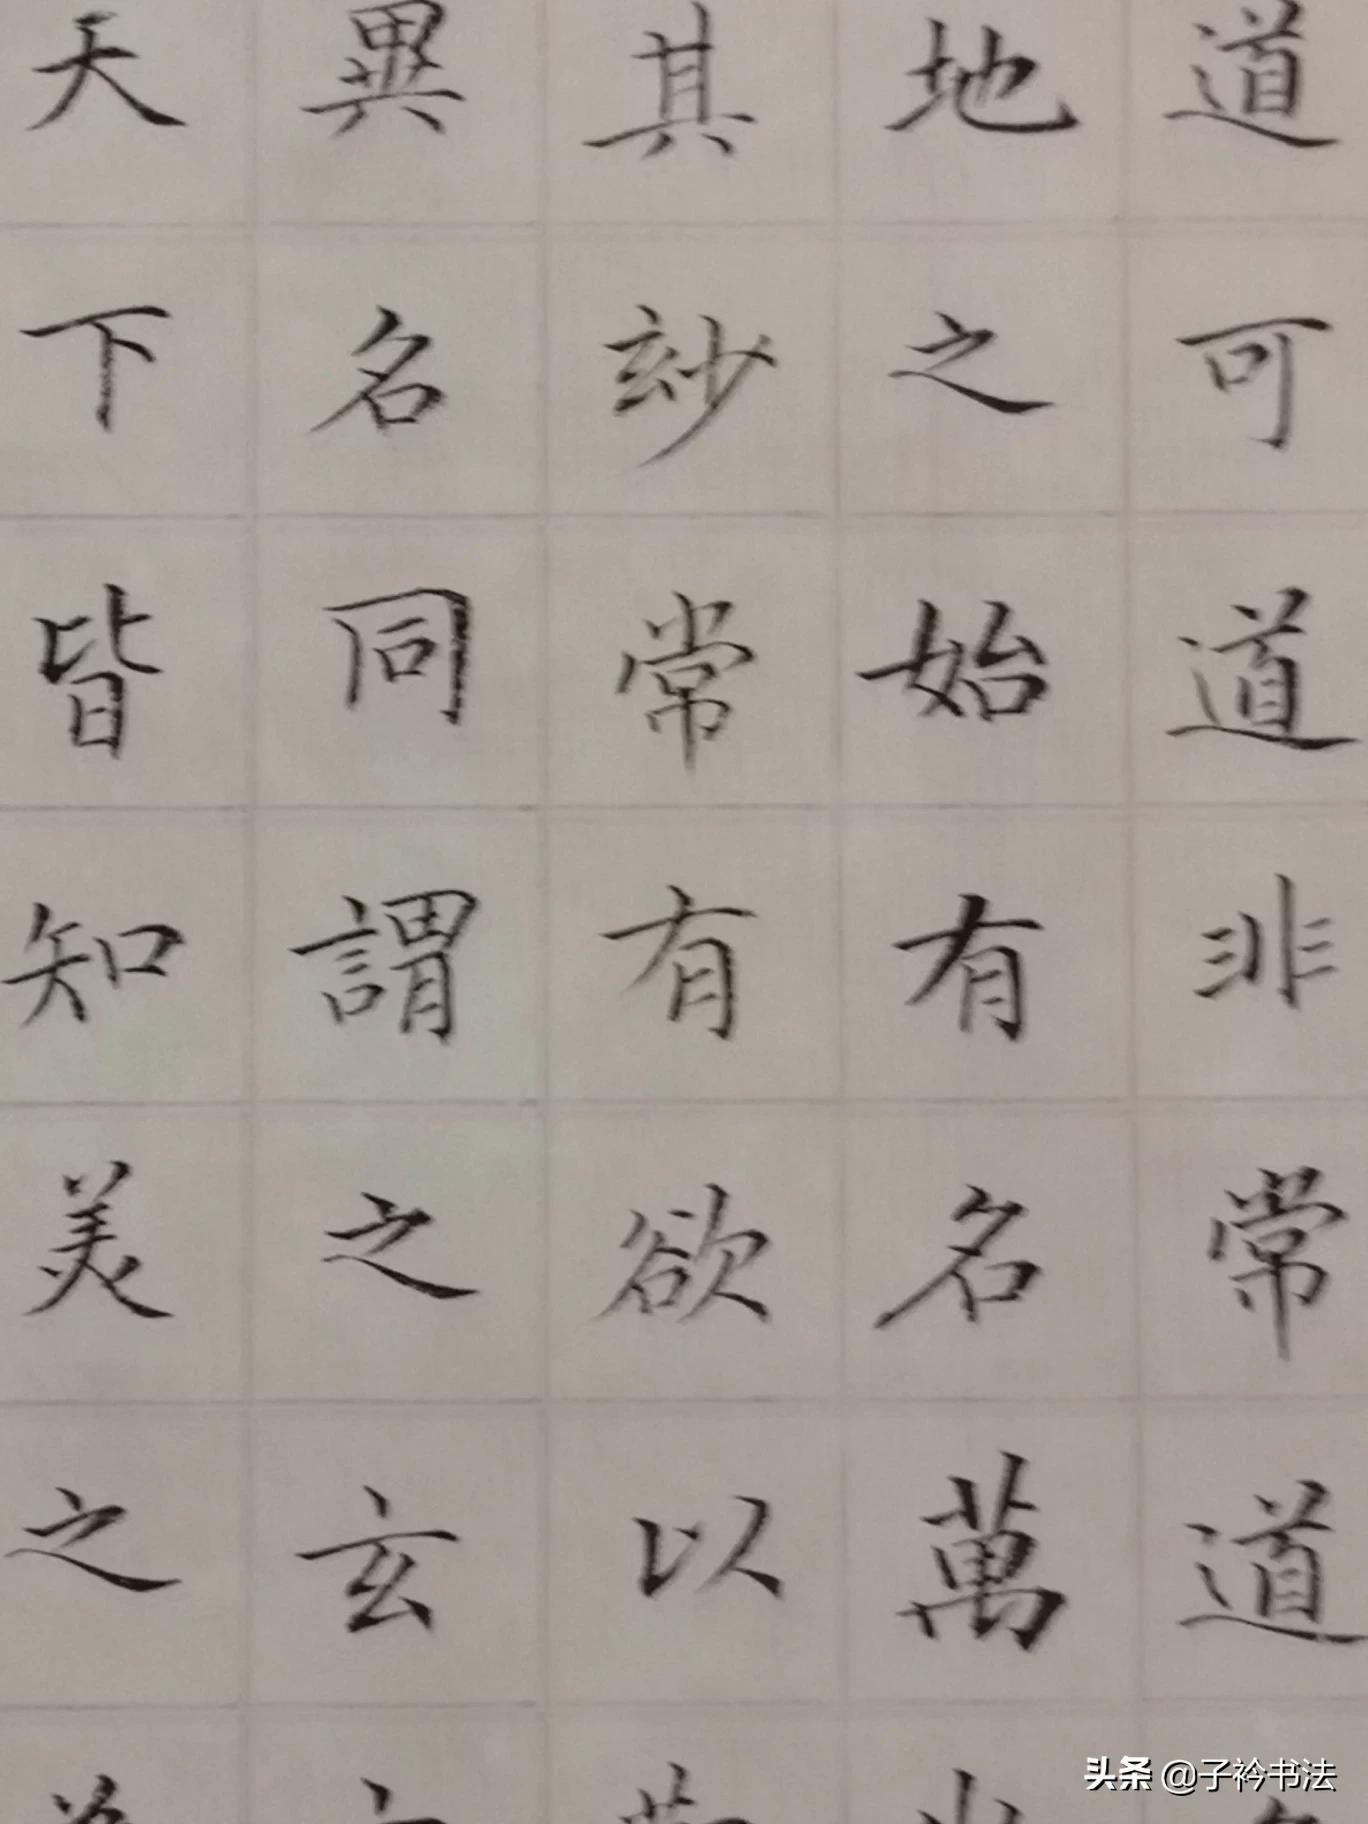 道可道非常道
地之始有名萬
其玅常有欲以
異名同謂之玄
天下皆知美之
头条 @子衿书法